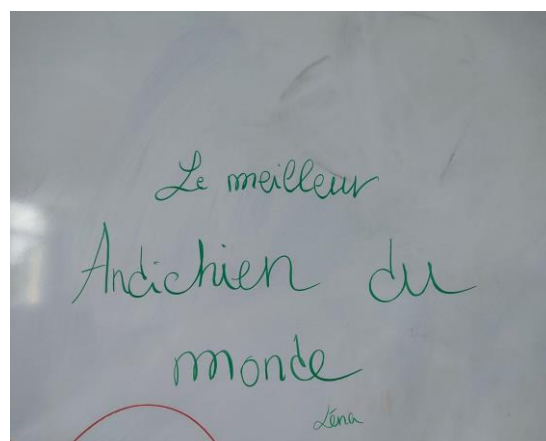 Le meilleur
Andichien du
monde
Léna